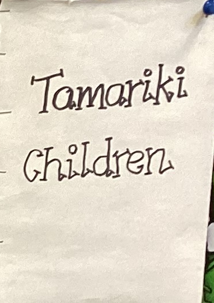 Tamariki
Children